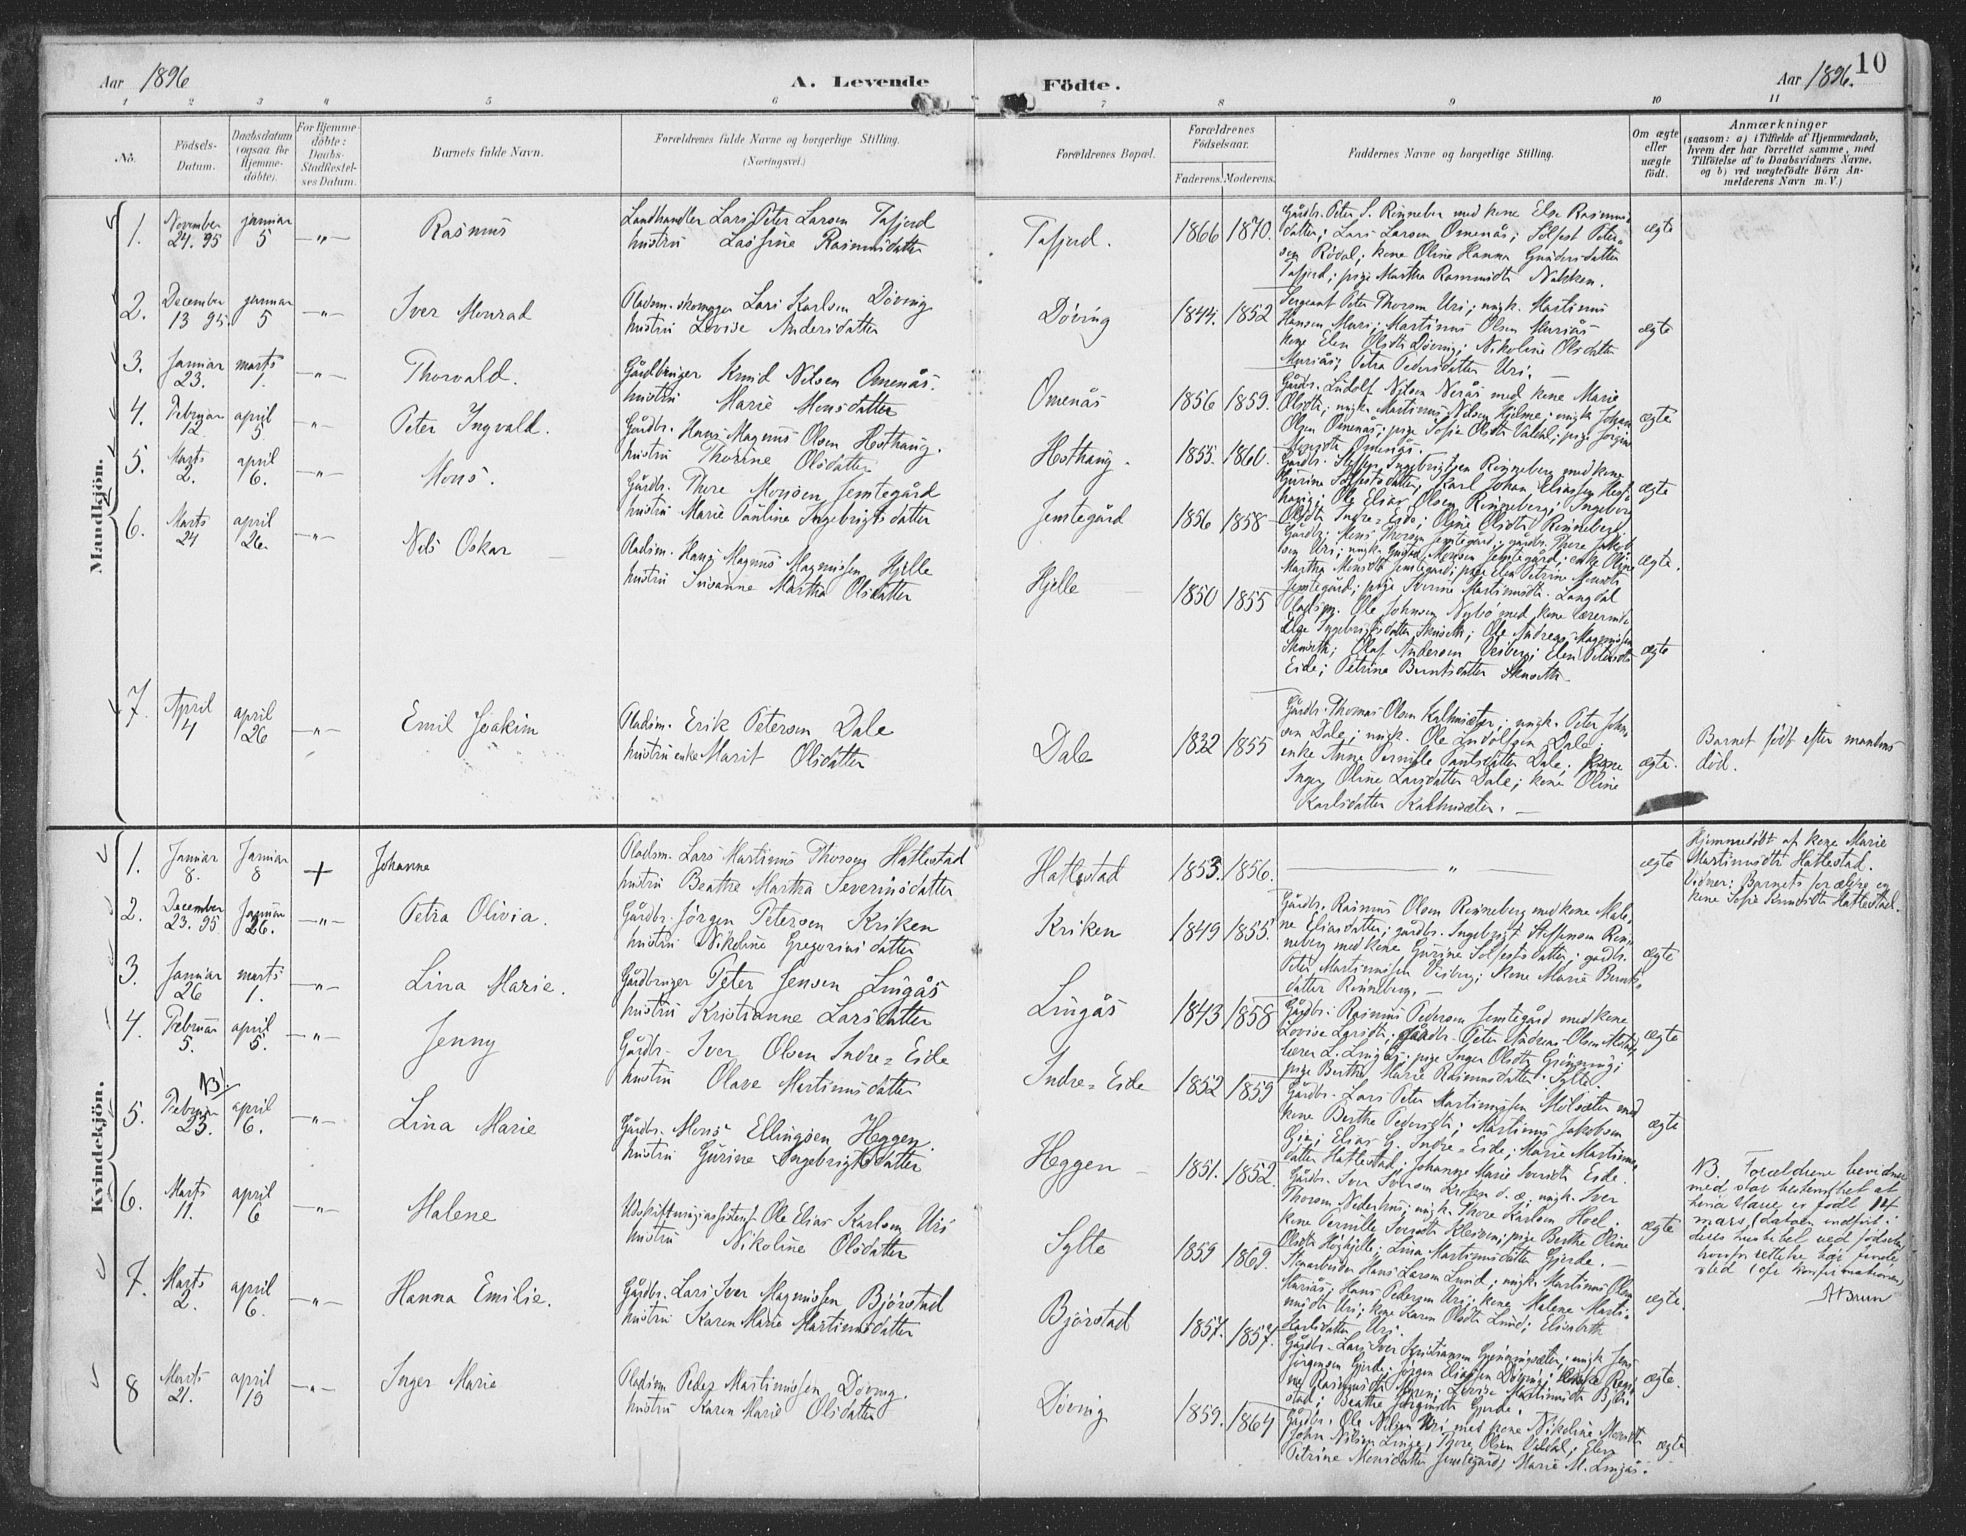 Aar 1896
A. Levende
Födte.
Aar 1896.
10
1 2 3 4 5 6 7 8 9 10 11
No.
Födsels-
Datum.
Daabsdatum
(ogsaa for
Hjemme-
döbte).
For Hjemme-
döbte:
Daabs-
Stadfæstel-
ses Datum.
Barnets fulde Navn.
Forældrenes fulde Navne og borgerlige Stilling.
(Næringsvei.)
Forældrenes Bopæl.
Forældrenes
Födselsaar.
Faderens. Moderens.
Faddernes Navne og borgerlige Stilling.
Om ægte
eller
uægte
födt.
Anmærkninger
(saasom: a) i Tilfælde af Hjemmedaab,
hvem der har forrettet samme, med
Tilföielse af to Daabsvidners Navne.
og b) ved uægtefödte Börn An-
melderens Navn m. V.)
Mandkjön.
1. November 24. 95 januar 5 —"— Rasmus
Landhandler Lars Peter Larsen Tafjord
hustru Lassine Rasmusdatter
Tafjord. 1866 1870.
Gårdb. Peter S. Rinneberg med kone Else Rasmus-
datter; Lars Larsen Omenås; Sölfest Peter-
sen Rödal; kone Oline Hanna Gundersdatter
Tafjord; pige Martha Rasmusdt. Nakken.
ægte
2. December 13 95. januar 5 —"— Iver Monrad
Pladsm. skomager Lars Karlsen Döving
hustru Lovise Andersdatter
Döving 1844. 1852
Sergeant Peter Thorsen Uri; ungk. Martinus
Hansen Muri; Martinus Olsen Muriås
kone Elen Olsdtr Döving; Nikoline Olsdatter
Muriås; Petra Pedersdatter Uri.
ægte
3. Januar 23. marts 1. —"— Thorvald.
Gårdbruger Knud Nilsen Omenås.
hustru Marie Monsdatter
Omenås 1856 1859.
Gårdb. Ludolf Nilsen Nerås med kone Marie
Olsdtr; ungk. Martinus Nilsen Hjelme; ungk. Johan
Olsen Omenås; pige Sofie Olsdtr Valdal; pige Jorgine
Monsdtr Omenås.
ægte
4. Februar 12. april 5 —"— Peter Ingvald.
Gårdbr. Hans Magnus Olsen Hosthaug.
hustru Thorine Olsdatter
Hosthaug. 1855. 1860.
Gårdb. Steffen Ingebrigtsen Rinneberg med kone
Gurine Sölfestsdatter; Karl Johan Eliassen Host-
haug; Ole Elias Olsen Rinneberg; Ingeborg
Olsdtr Indre-Eide; Oline Olsdtr Rinneberg
ægte
5. Marts 2. april 6. —"— Mons.
Gårdbr. Thore Monsen Jemtegård
hustru Marie Pauline Ingebrigtsdatter
Jemtegård 1856 1858
Gårdb. Mons Thorsen Jemtegård; gårdb. Thore Jakob-
sen Uri; ungk. Gustad Monsen Jemtegård; enke Oline
Martha Monsdtr Jemtegård; pige Elen Petrine Monsdtr
Jemtegård; pige Sverine Martinusdtr. Langdal
ægte.
6. Marts 24 april 26. —"— Nils Oskar
Pladsm. Hans Magnus Magnussen Hjelle
hustru Susanne Martha Olsdatter
Hjelle 1850 1855
Pladsm. Ole Johnsen Nybö med kone lærerinde
Else Ingebrigtsdatter Skuseth; Ole Andreas Magnussen
Skuseth; Olaf Andersen Veiberg; Elen Petersdtr
Eide; Petrina Berntsdatter Skuseth
ægte
7. April 4 april 26 —"— Emil Joakim
Pladsm. Erik Petersen Dale
hustru enke Marit Olsdatter
Dale 1832 1855
Gårdb. Thomas Olsen Kalhusæter; ungk. Peter John-
sen Dale; ungk. Ole Ludolfsen Dale;
enke Anne Pernille Paulsdatter Dale; kone
Inger Oline Larsdatter Dale; kone Oline
Karlsdatter Kalhusæter.
ægte.
Barnet födt efter mandens
död.
Kvindekjön.
1. Januar 8. Januar 8 + Johanne
Pladsm. Lars Martinus Thorsen Hatlestad
hustru Beathe Martha Severinsdatter
Hatlestad 1853. 1856. —"—
ægte
Hjemmedöbt af kone Marie
Martinusdtr Hatlestad.
Vidner: Barnets forældre og
kone Sofie Knudsdtr Hatlestad.
2. December 23. 95 Januar 26. —"— Petra Olivia.
Gårdbr. Jörgen Petersen Kriken
hustru Nikoline Gregoriusdatter
Kriken 1849 1855.
Gårdb. Rasmus Olsen Rinneberg med kone Male-
ne Eliasdatter; gårdbr. Ingebrigt Steffensen Rin-
neberg med kone Gurine Sölfestsdatter; gårdbr.
Peter Martinussen Veiberg; kone Marie Bernts-
datter Rinneberg.
ægte
3. Januar 26 marts 1. —"— Lina Marie.
Gårdbruger Peter Jensen Lingås
hustru Kristianne Larsdatter
Lingås 1843 1858
Gårdbr. Rasmus Pedersen Jemtegård med kone
Lovise Larsdtr; gårdbr. Peter Andreas Olsen Alstad;
lærer L. Lingås; pige Inger Olsdtr Grönning;
pige Berthe Marie Rasmusdatter Sylte.
ægte
4. Februar 5. april 5. —"— Jenny
Gårdbr. Iver Olsen Indre-Eide
hustru Olave Martinusdatter
Indre-Eide 1852 1859
Gårdbr. Lars Peter Martinussen Molsæter med
kone Berthe Pedersdtr; Martinus Jakobsen
Gin; Elias G. Indre-Eide; Marie Martinus-
datter Hatlestad; Johanne Marie Iversdtr Eide.
ægte
NB!
5. Februar 25. april 6. —"— Lina Marie
Gårdbr. Mons Ellingsen Heggen.
hustru Gurine Ingebrigtsdatter
Heggen 1851. 1852.
Gårdbr. Iver Iversen Kroken d. æ; ungk. Iver
Thorsen Nederhus; ungk. Thore Karlsen Hoel;
kone Pernille Iversdtr Kleiven; pige Berthe Oline
Olsdtr Höghjelle; Lina Martinusdatter Gjerde.
ægte
NB. Forældrene bevidner
med stor bestemthet at
Lina Marie er födt 14
mars, (datoen indfört i
deres husbibel ved födselen)
hvorfor rettelse bör finde
sted (ofr. konfirmationen)
ABrun
6. Marts 11. april 6 —"— Malene
Udskiftningsassistent Ole Elias Karlsen Uri
hustru Nikoline Olsdatter
Sylte 1859 1869.
Stenarbeider Hans Larsen Lund; ungk. Martinus Olsen
Muriås; Hans Pedersen Uri; kone Malene Marti-
nusdtr Uri; kone Karen Olsdtr Lund; Elisabeth
Karlsdatter Uri.
ægte.
7. Marts 2. april 6. —"— Hanna Emilie.
Gårdbr. Lars Iver Magnussen Bjorstad
hustru Karen Marie Martinusdatter
Bjorstad 1857. 1857.
Gårdbr. Lars Iver Kristiansen Grönningsæter; ungk. Jens
Jörgensen Gjerde; Jörgen Eliassen Döving; kone Regi-
ne Rasmusdtr Muren; Lovise Martinusdtr Bjor-
stad; Beathe Jörgensdtr Gjerde.
ægte.
8 Marts 21. april 19 —"— Inger Marie
Pladsm. Peder Martinussen Döving.
hustru Karen Marie Olsdatter
Döving 1859. 1864
Gårdbr. Ole Nilsen Uri med kone Nikoline Monsdtr
John Nilsen Linge; Thore Olsen Valdal; Elen
Petrine Monsdatter Jemtegård; Marie M. Lingås.
ægte